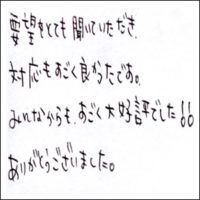 要望をとても聞いていただき、
対応もすごく良かったです。
みんなからも、すごく大好評でした！！
ありがとうございました。